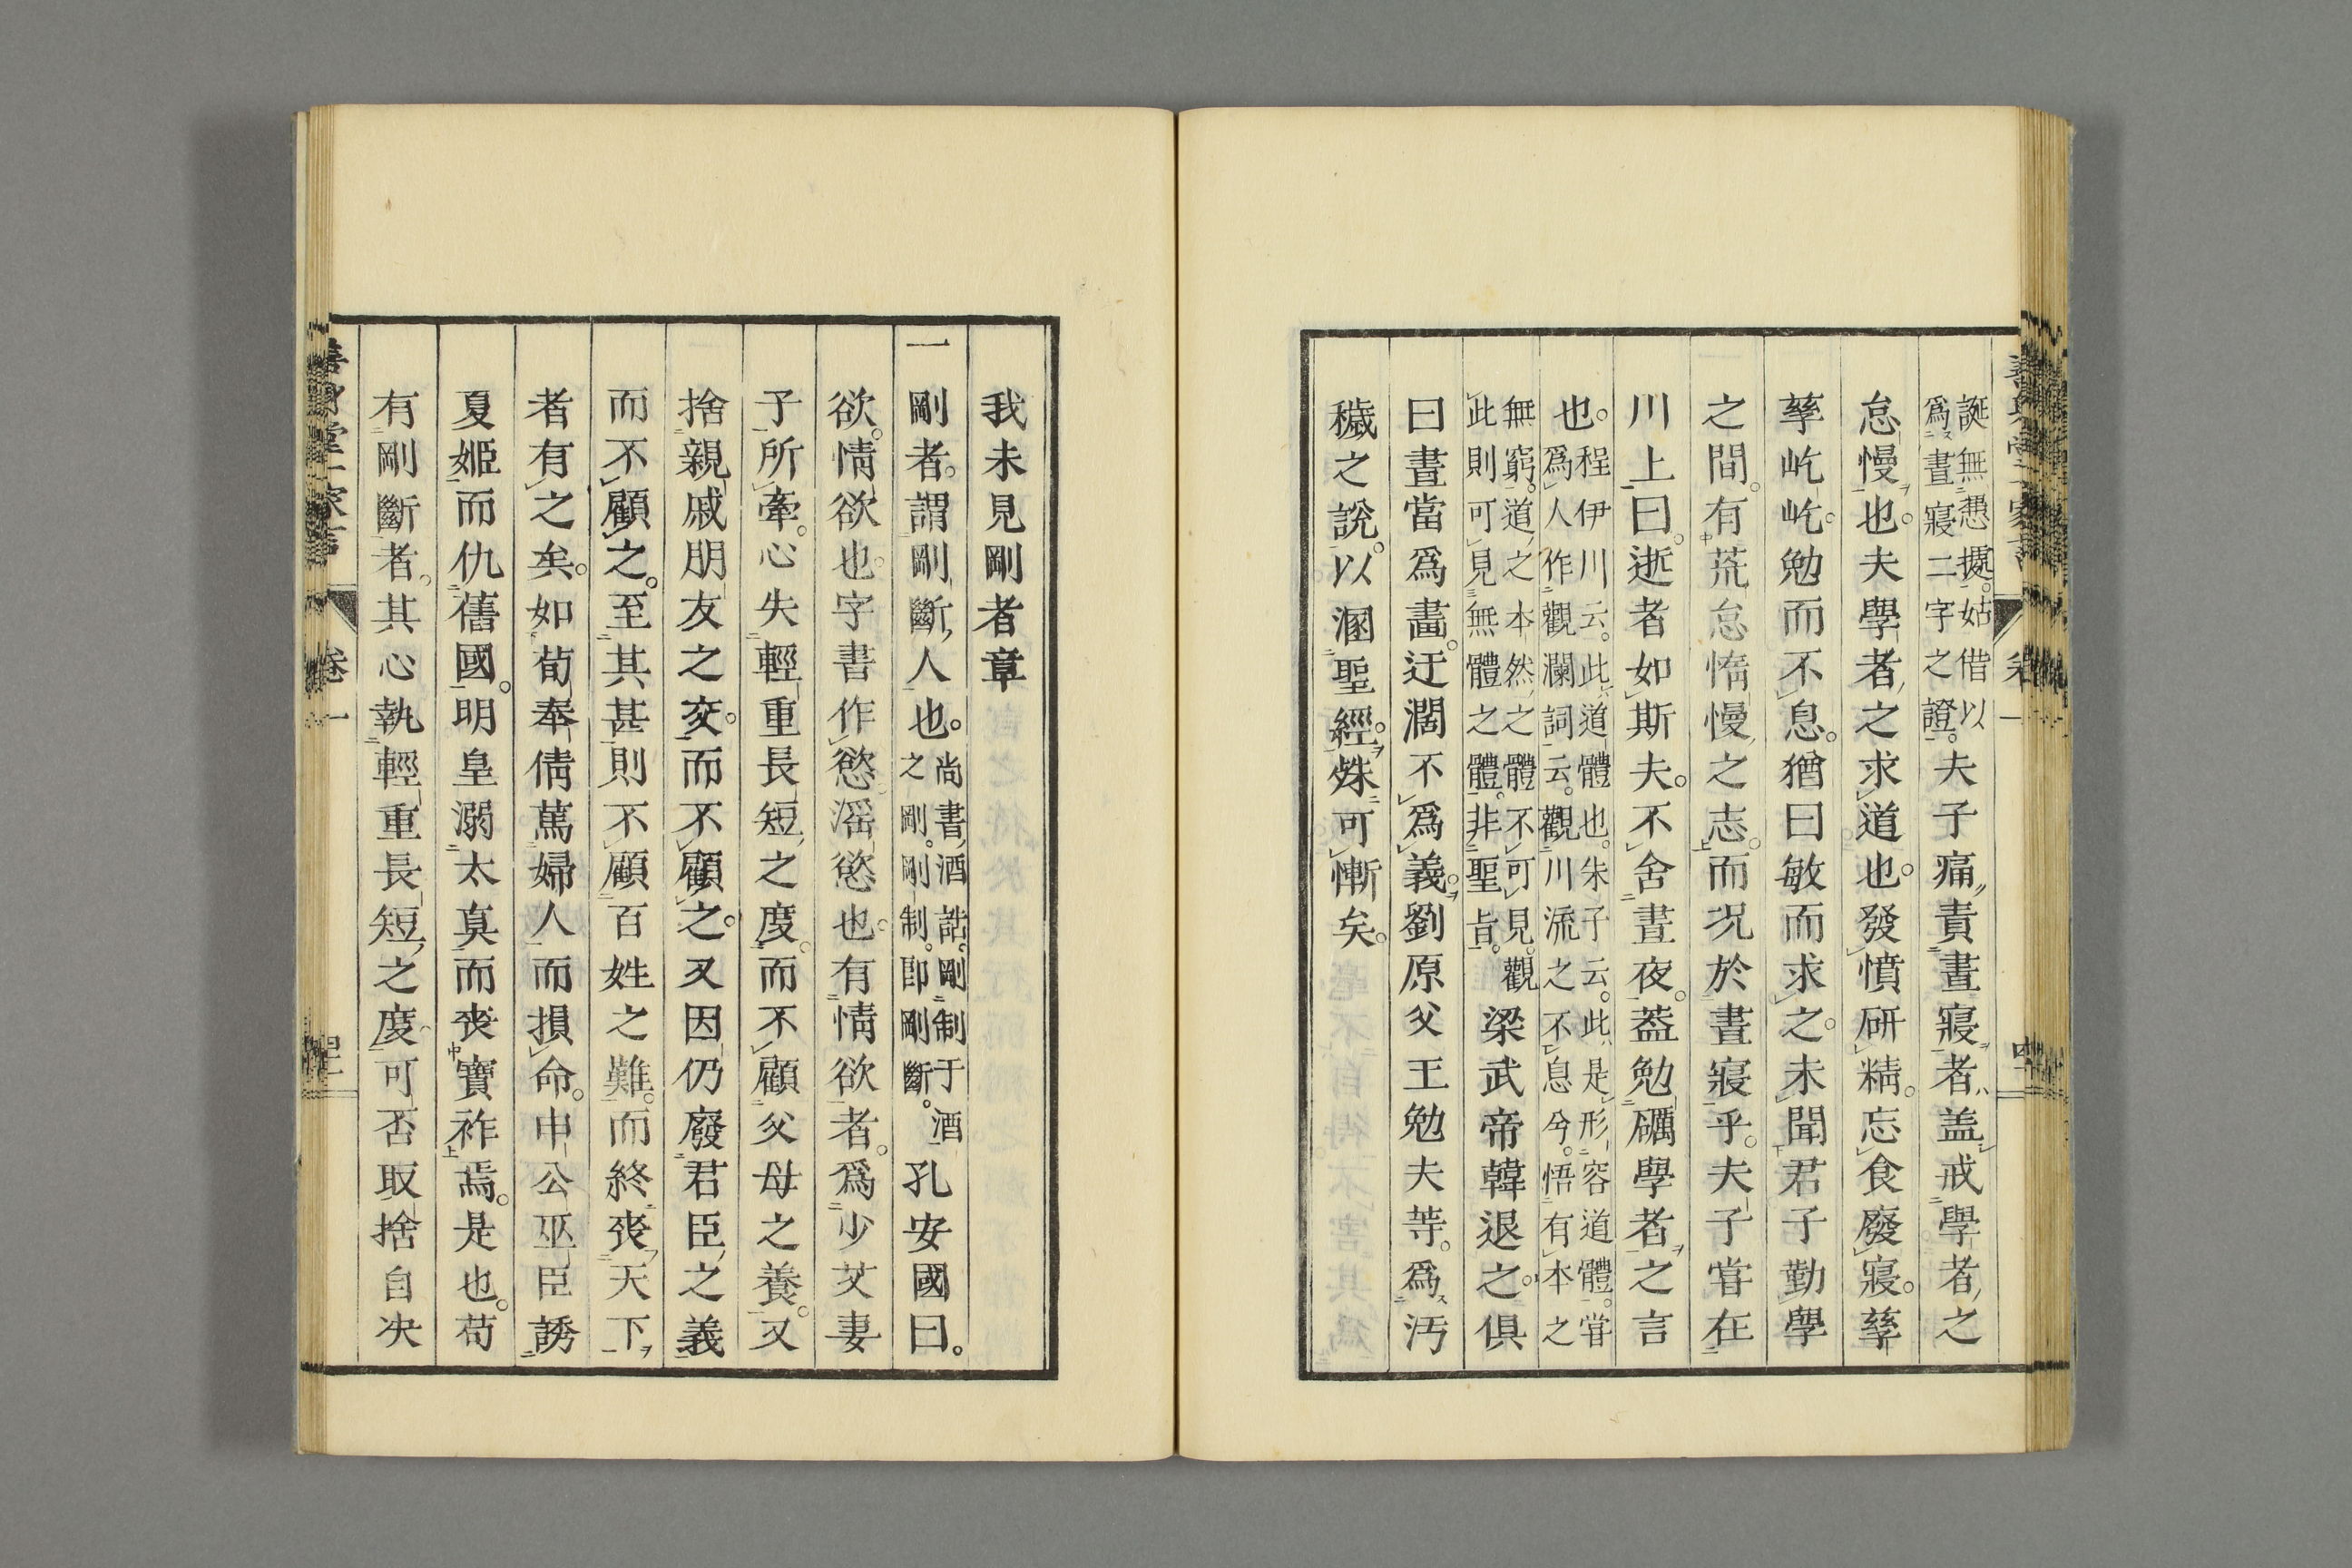 誕無慿據。姑借以
爲晝寢二字之證。夫子痛責晝寢者、盖戒學者之
怠慢也。夫學者之求道也。發憤研精。忘食廢寢。孳
孳屹屹。勉而不息。猶曰敏而求之。未聞君子勤學
之間。有荒怠惰慢之志。而况於晝寢乎。夫子甞在
川上曰。逝者如斯夫。不舍晝夜。葢勉礪學者之言
也。程伊川云。此道體也。朱子云。此是形容道體。甞
爲人作觀瀾詞云。觀川流之不息兮。悟有本之
無窮。道之本然之體不可見。觀
此則可見無體之體。非聖旨。梁武帝韓退之。俱
曰晝當爲畵。迂濶不爲義。劉原父王勉夫等。爲汚
穢之說。以溷聖經。殊可慚矣。
卷一
我未見剛者章
一剛者。謂剛斷人也。尚書酒誥。剛制于酒
之剛。剛制。卽剛斷。孔安國曰。
欲。情欲也。字書作慾。滛慾也。有情欲者。爲少艾妻
子所牽。心失輕重長短之度。而不顧父母之養。又
捨親戚朋友之交。而不顧之。又因仍廢君臣之義
而不顧之。至其甚則不顧百姓之難。而終喪天下
者有之矣。如荀奉倩篤婦人而損命。申公巫臣誘
夏姬而仇舊國。明皇溺太真而喪寶祚焉。是也。苟
有剛斷者。其心執輕重長短之度。可否取捨自决
卷一